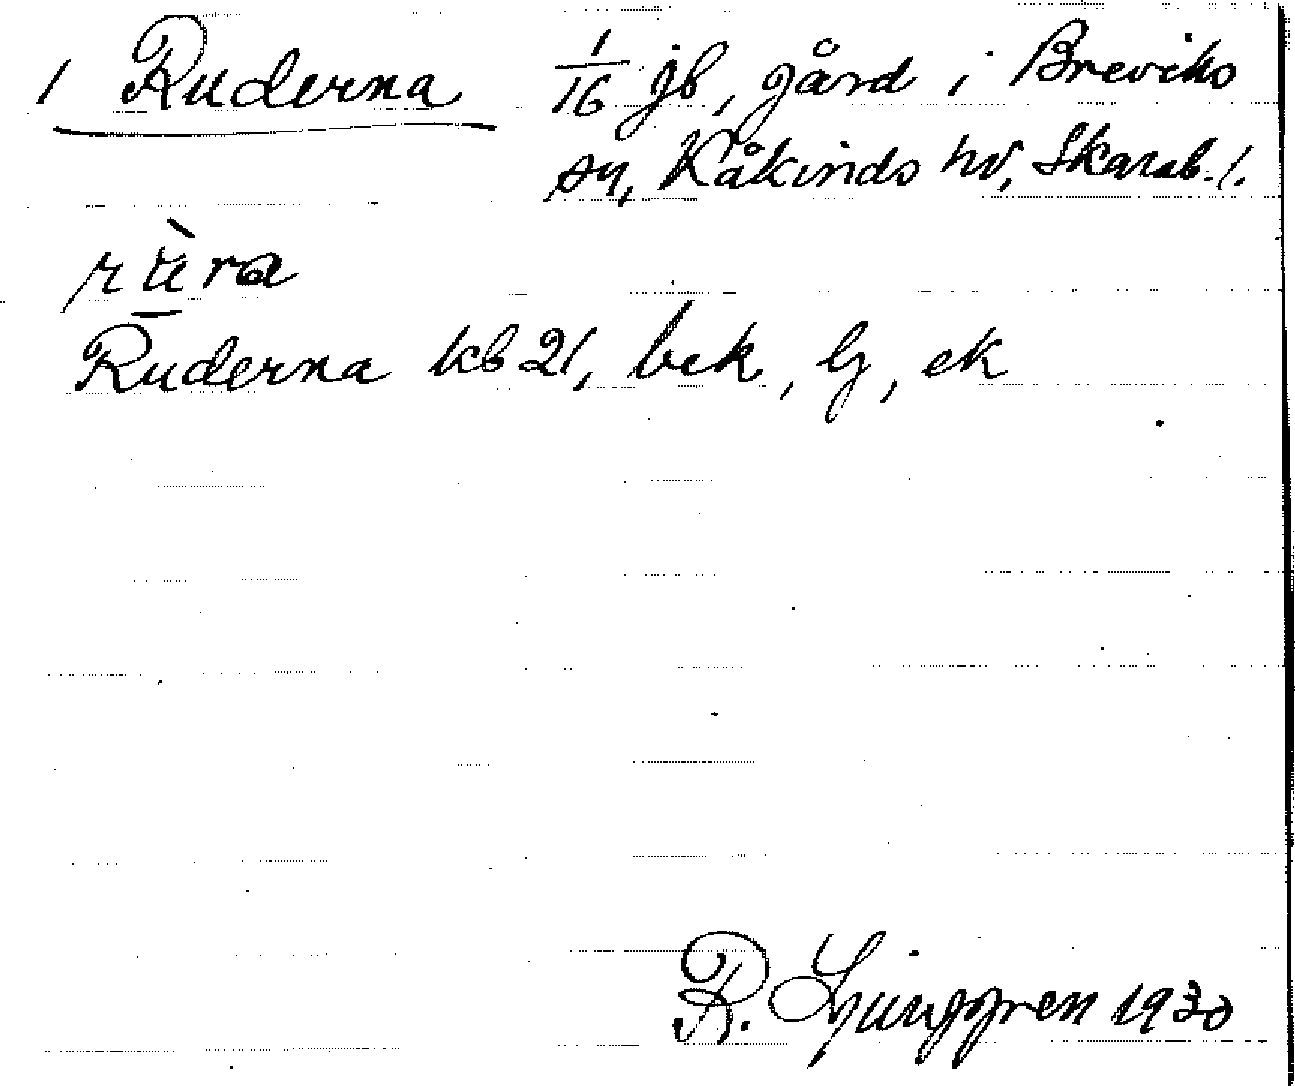 1 Ruderna 1/16 jb, gård i Breviks
sn, Kåkinds hd, Skarab. l.
rùra
Ruderna kb 21, bek, lj, ek
R. Ljunggren 1930